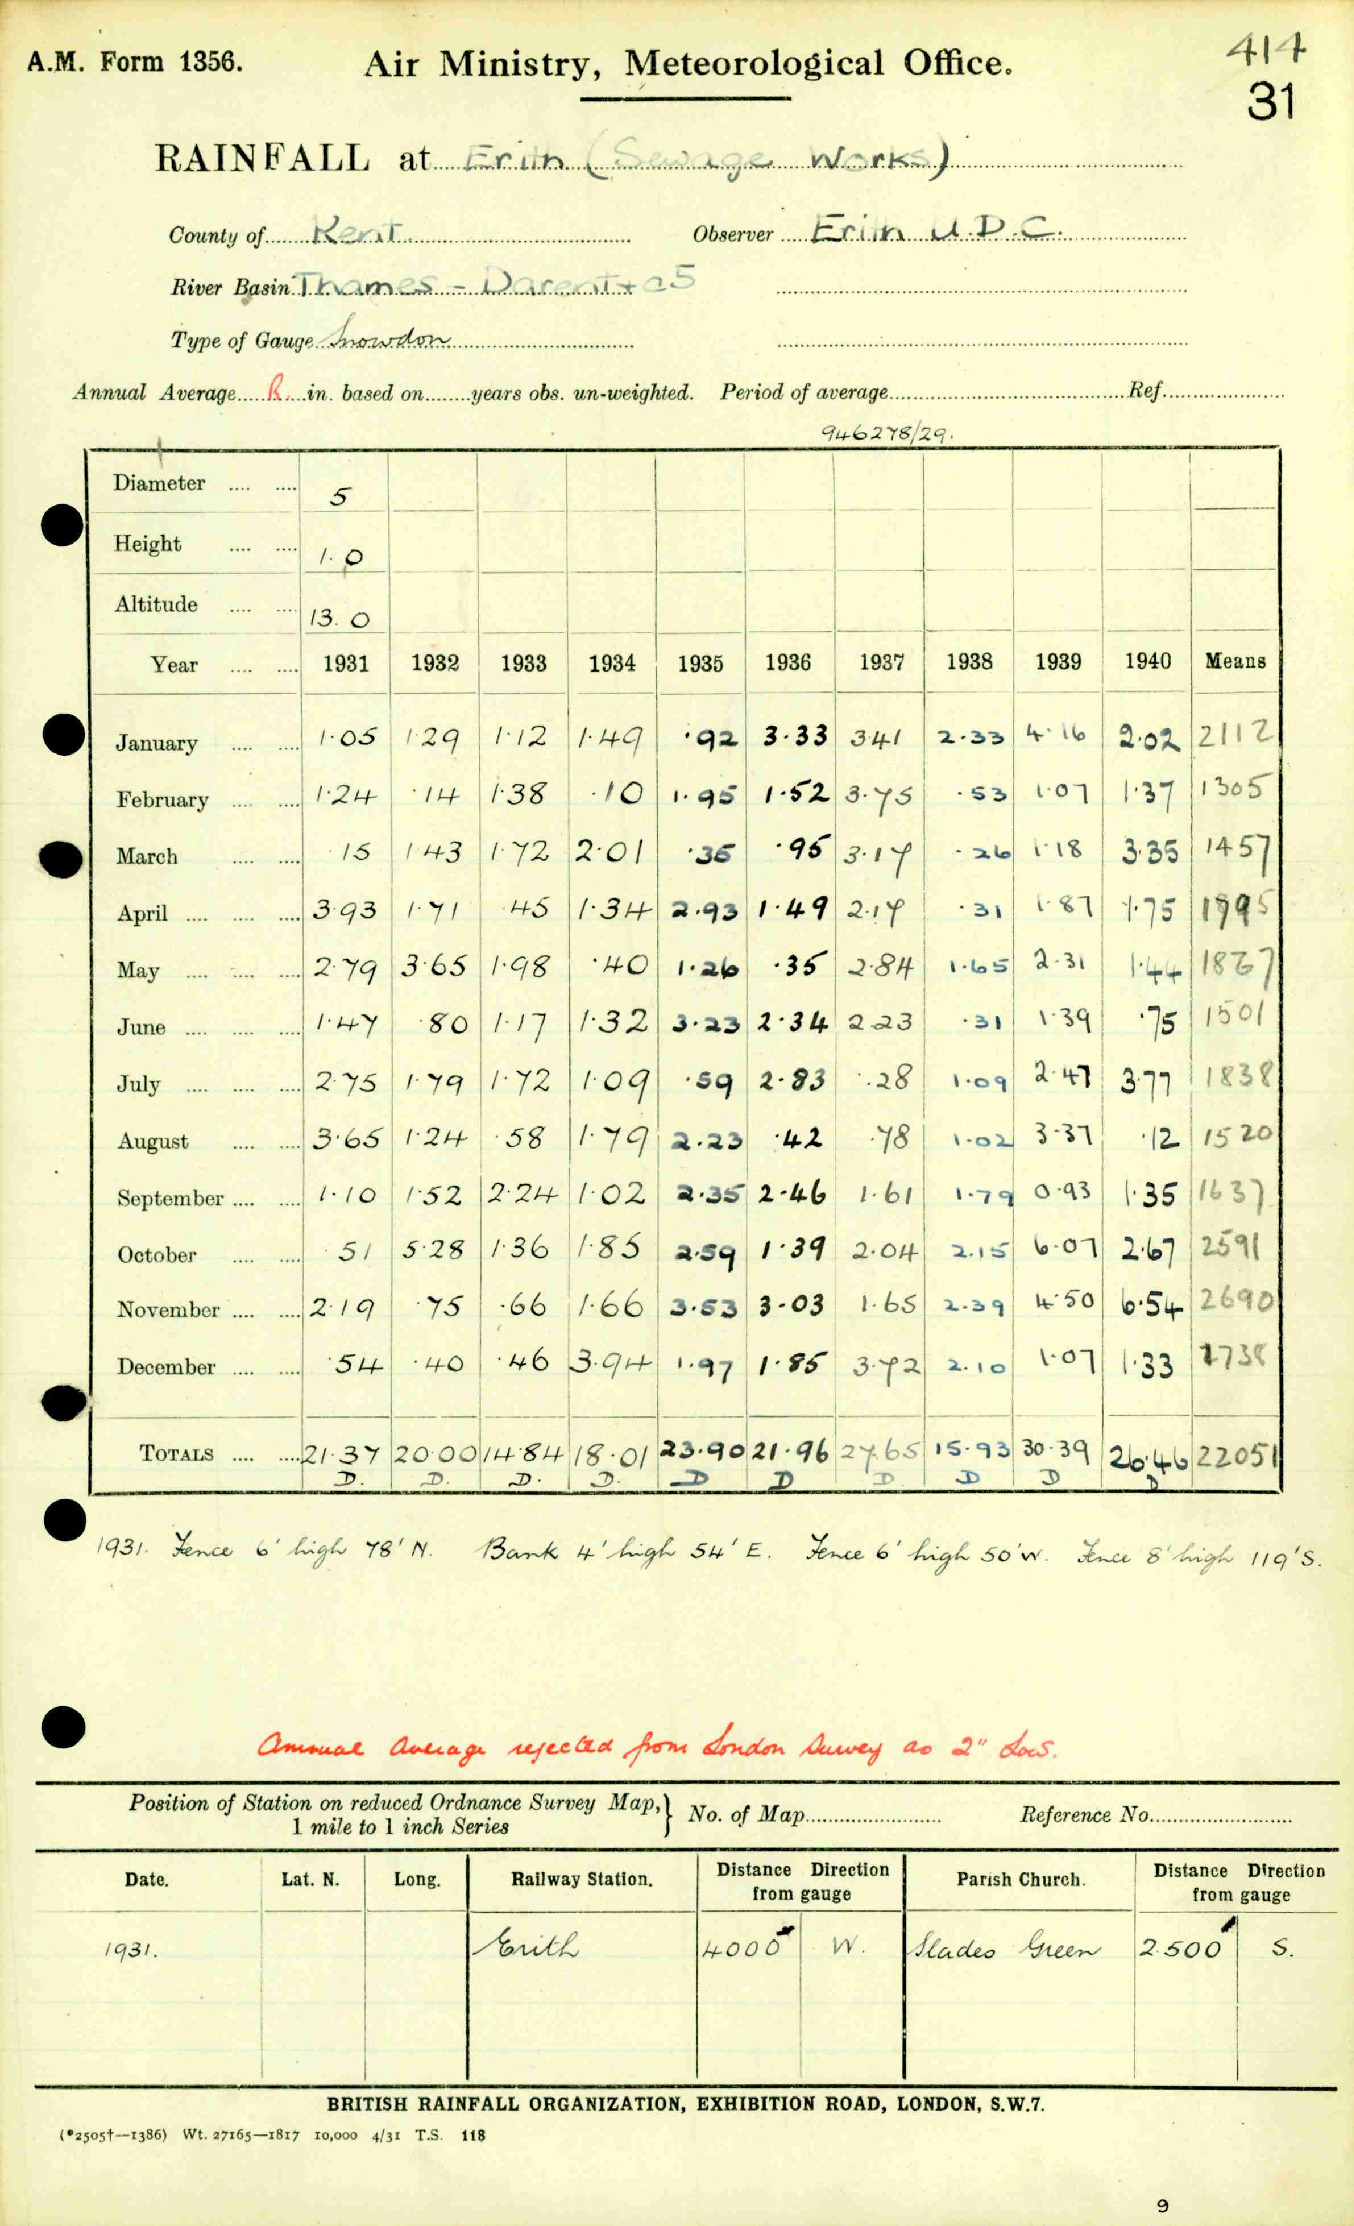 A.M. Form 1356. Air Ministry, Meteorological Office. 414
31
RAINFALL at Erith (Sewage Works)
County of Kent. Observer Erith U.D.C.
River Basin Thames - Darent + a5
Type of Gauge Snowdon
Annual Average R. in. based on years obs. un-weighted. Period of average Ref.
946278/29.
Diameter 5
Height 1.0
Altitude 13.0
Year 1931 1932 1933 1934 1935 1936 1937 1938 1939 1940 Means
January 1.05 1.29 1.12 1.49 .92 3.33 3.41 2.33 4.16 2.02 2112
February 1.24 .14 1.38 .10 1.95 1.52 3.75 .53 1.07 1.37 1305
March .15 1.43 1.72 2.01 .35 .95 3.17 .26 1.18 3.35 1457
April 3.93 1.71 .45 1.34 2.93 1.49 2.17 .31 1.87 1.75 1995
May 2.79 3.65 1.98 .40 1.26 .35 2.84 1.65 2.31 1.44 1867
June 1.47 .80 1.17 1.32 3.23 2.34 2.23 .31 1.39 .75 1501
July 2.75 1.79 1.72 1.09 .59 2.83 .28 1.09 2.47 3.77 1838
August 3.65 1.24 .58 1.79 2.23 .42 .78 1.02 3.37 .12 1520
September 1.10 1.52 2.24 1.02 2.35 2.46 1.61 1.79 0.93 1.35 1637
October .51 5.28 1.36 1.85 2.59 1.39 2.04 2.15 6.07 2.67 2591
November 2.19 .75 .66 1.66 3.53 3.03 1.65 2.39 4.50 6.54 2690
December .54 .40 .46 3.94 1.97 1.85 3.72 2.10 1.07 1.33 1738
TOTALS 21.37 20.00 14.84 18.01 23.90 21.96 27.65 15.93 30.39 26.46 22051
D. D. D. D. D D D. D D D
1931. Fence 6' high 78' N. Bank 4' high 54' E. Fence 6' high 50' W. Fence 8' high 119' S.
Annual Average rejected from London Survey as 2" Low.
Position of Station on reduced Ordnance Survey Map, } No. of Map Reference No.
1 mile to 1 inch Series
Date. Lat. N. Long. Railway Station. Distance Direction from gauge Parish Church. Distance Direction from gauge
1931. Erith 4000' W. Slades Green 2500' S.
BRITISH RAINFALL ORGANIZATION, EXHIBITION ROAD, LONDON, S.W.7.
(*2505†—1386) Wt. 27165—1817 10,000 4/31 T.S. 118
9